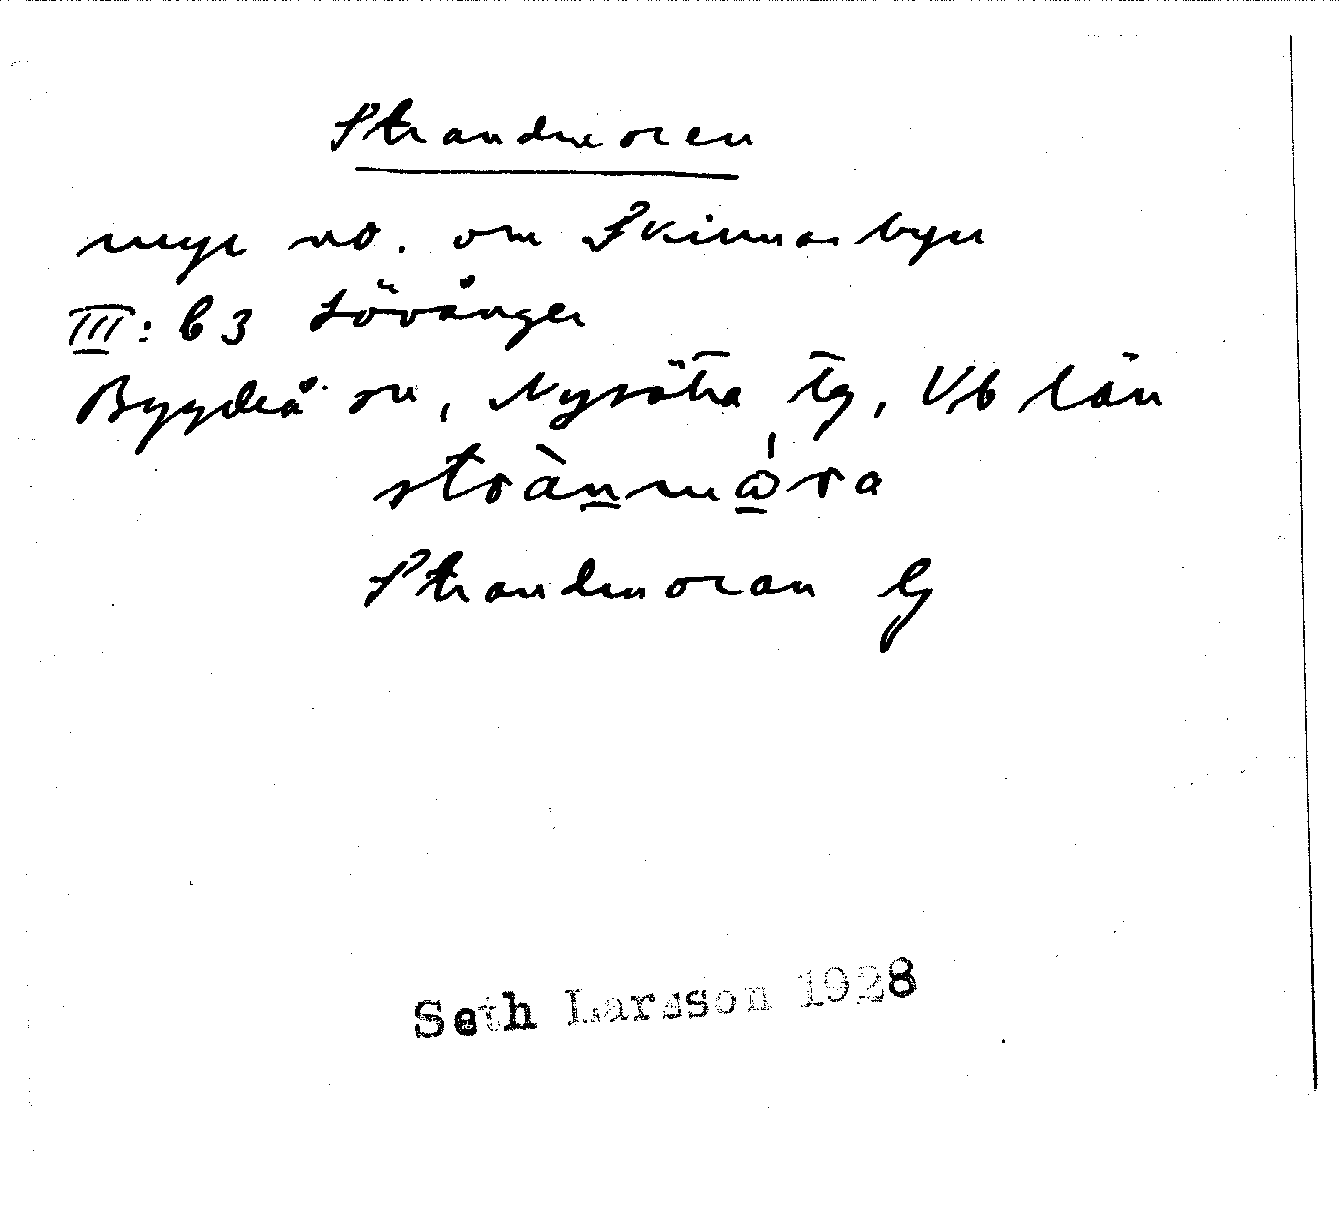 Strandmoren
myr nö. om Skinnarbyn
III: b 3 Lövånger
Bygdeå sn, Nysätra tg, Vb län
Strandmoran G
Seth Larsson 1928